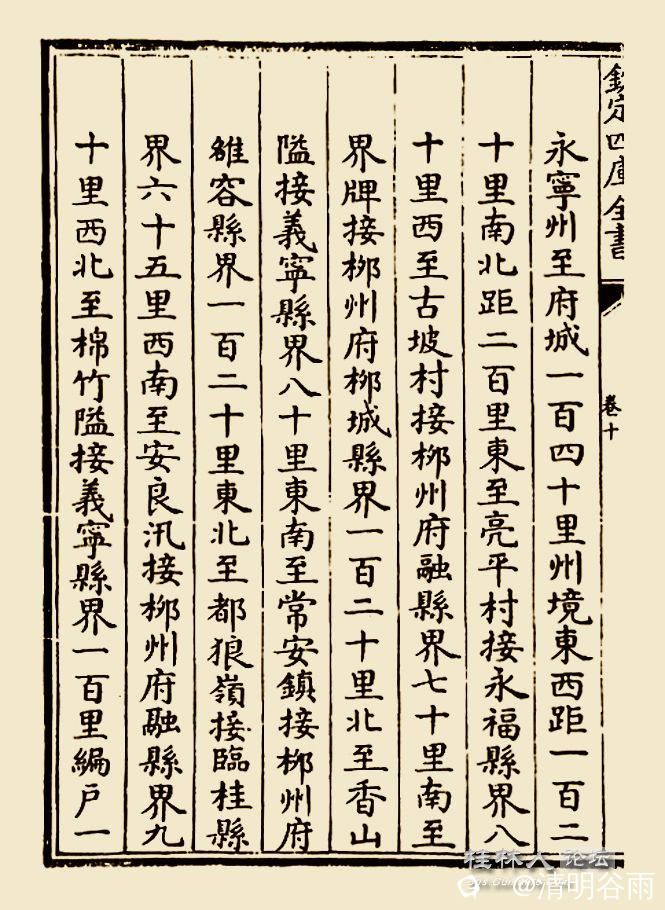 欽定四庫全書
卷十
永寧州至府城一百四十里州境東西距一百二
十里南北距二百里東至亮平村接永福縣界八
十里西至古坡村接栁州府融縣界七十里南至
界牌接栁州府栁城縣界一百二十里北至香山
隘接義寧縣界八十里東南至常安鎮接栁州府
雒容縣界一百二十里東北至都狼嶺接臨桂縣
界六十五里西南至安良汛接栁州府融縣界九
十里西北至棉竹隘接義寧縣界一百里編戶一
桂林人论坛
@清明谷雨